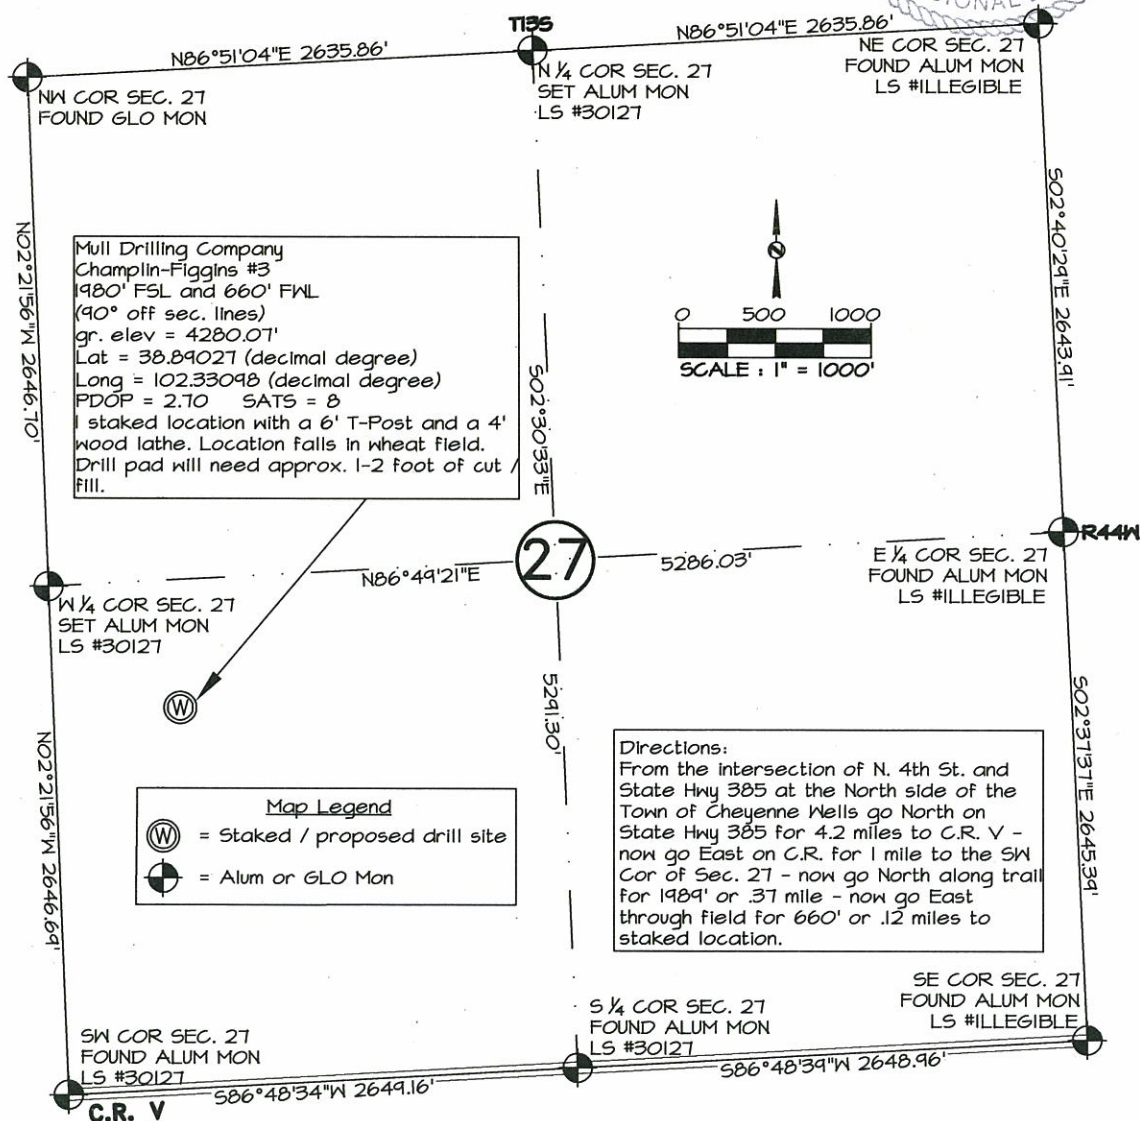 SIONAL
T13S
N86°51'04"E 2635.86'
N86°51'04"E 2635.86'
NW COR SEC. 27
FOUND GLO MON
N ¼ COR SEC. 27
SET ALUM MON
LS #30127
NE COR SEC. 27
FOUND ALUM MON
LS #ILLEGIBLE
N02°21'56"W 2646.70'
S02°40'29"E 2643.91'
Mull Drilling Company
Champlin-Figgins #3
1980' FSL and 660' FWL
(90° off sec. lines)
gr. elev = 4280.07'
Lat = 38.89027 (decimal degree)
Long = 102.33098 (decimal degree)
PDOP = 2.70 SATS = 8
I staked location with a 6' T-Post and a 4'
wood lathe. Location falls in wheat field.
Drill pad will need approx. 1-2 foot of cut /
fill.
N
0 500 1000
SCALE : 1" = 1000'
S02°30'33"E
27
N86°49'21"E
5286.03'
R44W
W ¼ COR SEC. 27
SET ALUM MON
LS #30127
E ¼ COR SEC. 27
FOUND ALUM MON
LS #ILLEGIBLE
W
5291.30'
N02°21'56"W 2646.69'
S02°37'37"E 2645.39'
Map Legend
W = Staked / proposed drill site
= Alum or GLO Mon
Directions:
From the intersection of N. 4th St. and
State Hwy 385 at the North side of the
Town of Cheyenne Wells go North on
State Hwy 385 for 4.2 miles to C.R. V -
now go East on C.R. for 1 mile to the SW
Cor of Sec. 27 - now go North along trail
for 1989' or .37 mile - now go East
through field for 660' or .12 miles to
staked location.
SW COR SEC. 27
FOUND ALUM MON
LS #30127
S ¼ COR SEC. 27
FOUND ALUM MON
LS #30127
SE COR SEC. 27
FOUND ALUM MON
LS #ILLEGIBLE
S86°48'34"W 2649.16'
S86°48'39"W 2648.96'
C.R. V